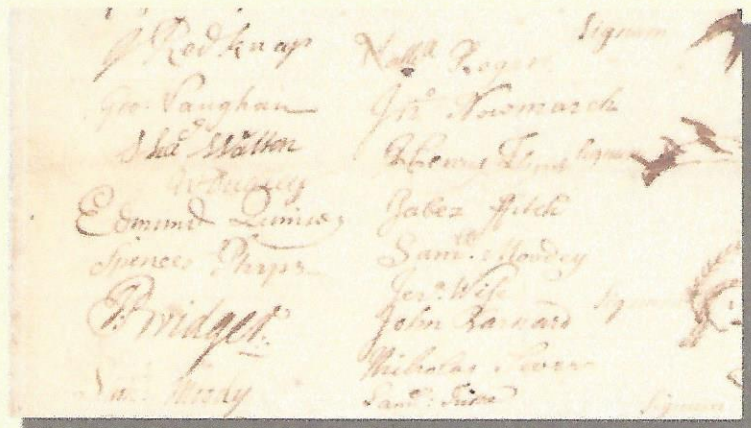 J Redknap
Geo: Vaughan
Shad Walton
Edmund Quincey
Spencer Phips
J Bridger.
Sam: Moody
Nathll Rogers
Jno Newmarch
Henry Flynt
Jabez Fitch
Samll: Moodey
Jer: Wise
John Barnard
Nicholas Sever
Samll:
Signum
Signum
Signum
Signum